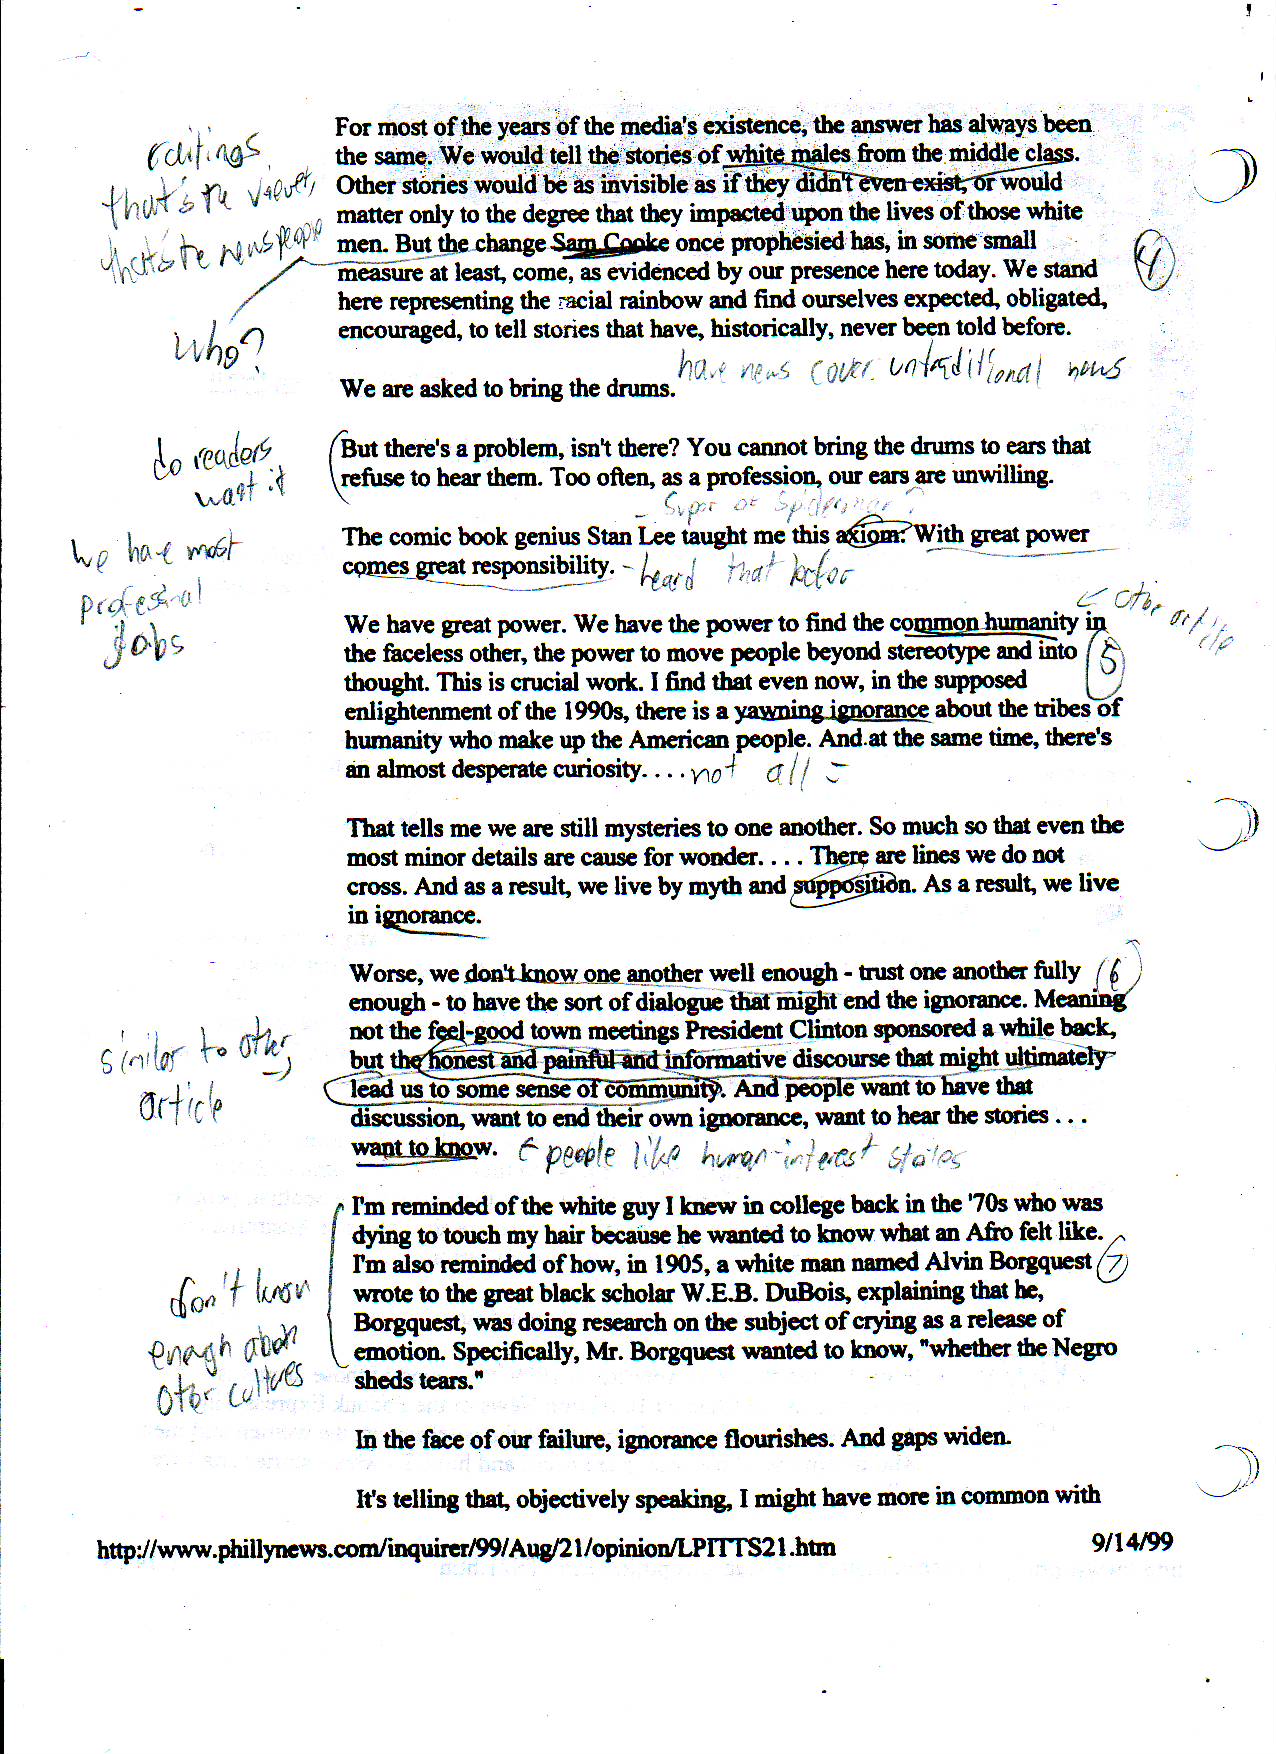 For most of the years of the media's existence, the answer has always been
the same. We would tell the stories of white males from the middle class.
Other stories would be as invisible as if they didn't even exist, or would
matter only to the degree that they impacted upon the lives of those white
men. But the change Sam Cooke once prophesied has, in some small
measure at least, come, as evidenced by our presence here today. We stand
here representing the racial rainbow and find ourselves expected, obligated,
encouraged, to tell stories that have, historically, never been told before.
that's the
that's the news people
Who?
4
have news cover untraditional news
We are asked to bring the drums.
do readers
want it
But there's a problem, isn't there? You cannot bring the drums to ears that
refuse to hear them. Too often, as a profession, our ears are unwilling.
we have most
professional
jobs
- Super or Spiderman?
The comic book genius Stan Lee taught me this axiom: With great power
comes great responsibility. - heard that before
← other article
We have great power. We have the power to find the common humanity in
the faceless other, the power to move people beyond stereotype and into
5
thought. This is crucial work. I find that even now, in the supposed
enlightenment of the 1990s, there is a yawning ignorance about the tribes of
humanity who make up the American people. And at the same time, there's
an almost desperate curiosity. . . . not all
That tells me we are still mysteries to one another. So much so that even the
most minor details are cause for wonder. . . . There are lines we do not
cross. And as a result, we live by myth and supposition. As a result, we live
in ignorance.
Worse, we don't know one another well enough - trust one another fully
6
enough - to have the sort of dialogue that might end the ignorance. Meaning
not the feel-good town meetings President Clinton sponsored a while back,
but the honest and painful and informative discourse that might ultimately
lead us to some sense of community. And people want to have that
discussion, want to end their own ignorance, want to hear the stories . . .
want to know. ← people like human-interest stories
similar to other
article
I'm reminded of the white guy I knew in college back in the '70s who was
dying to touch my hair because he wanted to know what an Afro felt like.
I'm also reminded of how, in 1905, a white man named Alvin Borgquest
7
wrote to the great black scholar W.E.B. DuBois, explaining that he,
Borgquest, was doing research on the subject of crying as a release of
emotion. Specifically, Mr. Borgquest wanted to know, "whether the Negro
sheds tears."
don't know
enough about
other cultures
In the face of our failure, ignorance flourishes. And gaps widen.
It's telling that, objectively speaking, I might have more in common with
http://www.phillynews.com/inquirer/99/Aug/21/opinion/LPITTS21.htm
9/14/99